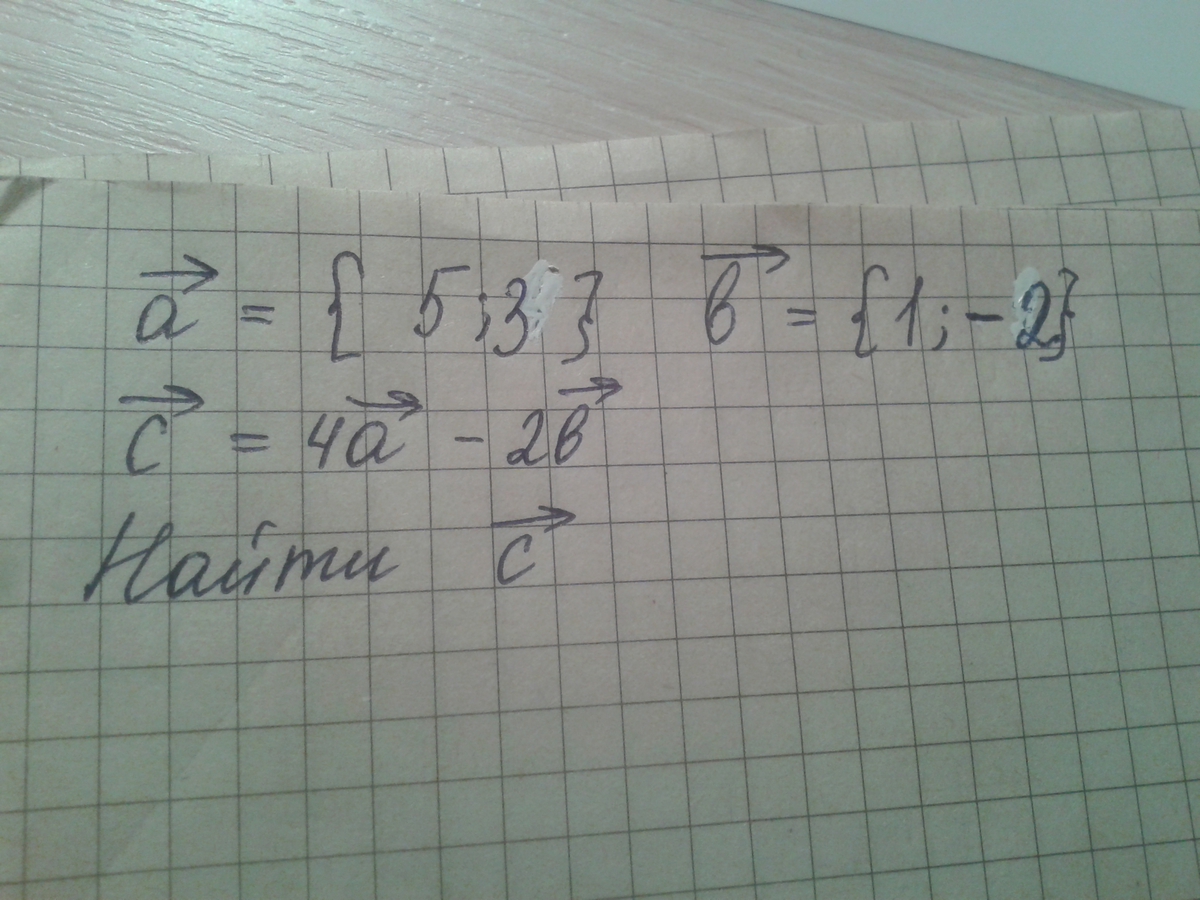 a⃗ = { 5 ; 3 } в⃗ = {1 ; - 2}
c⃗ = 4a⃗ - 2в⃗
Найти c⃗